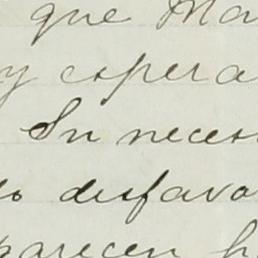 que Ma
y espera
Su neces
do desfavo
parecen h